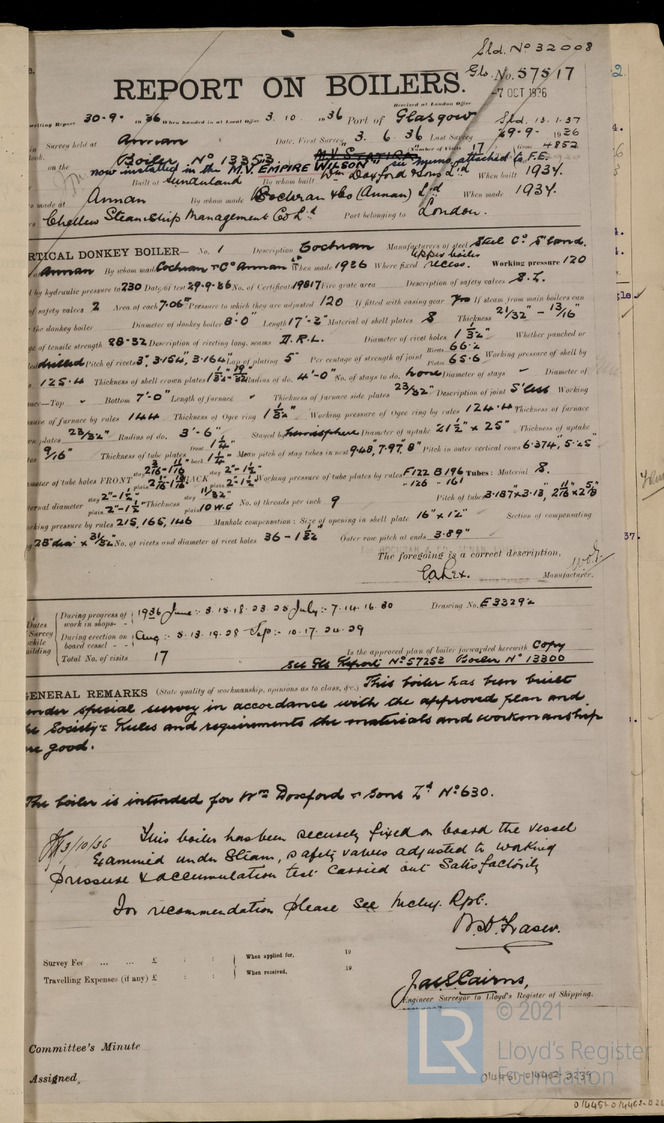 Sld. No 32008
Gls. No. 57517
REPORT ON BOILERS.
Received at London Office
-7 OCT 1936
writing Report 30-9- 1936 When handed in at Local Office 3. 10. 1936 Port of Glasgow
Survey held at Annan Date, First Survey 3. 6. 36 Last Survey 29-9- 1936
on the Boiler No 13353 (Number of Visits 17
now installed in the M.V. EMPIRE WILSON attached to F.E.
Built at Sunderland By whom built Wm Doxford & Sons Ld When built 1937.
made at Annan By whom made Cochran & Co (Annan) Ld When made 1937.
Chellew Steamship Management Co Ld Port belonging to London.
VERTICAL DONKEY BOILER— No. 1 Description Cochran Manufacturers of steel Steel Co Scotland.
Annan By whom made Cochran & Co Annan Ld When made 1936 Where fixed Upper boiler recess. Working pressure 120
by hydraulic pressure to 230 Date of test 29-9-36 No. of Certificate 19817 Fire grate area Description of safety valves S.L.
of safety valves 2 Area of each 7.06" Pressure to which they are adjusted 120 If fitted with easing gear Yes If steam from main boilers can
the donkey boiler Diameter of donkey boiler 8'-0" Length 17'-3" Material of shell plates S Thickness 21/32" - 13/16"
of tensile strength 28-32 Description of riveting long. seams D.R.L. Diameter of rivet holes 1 3/32" Whether punched or
drilled Pitch of rivets 3", 3.154", 3.164" Lap of plating 5" Per centage of strength of joint Rivets 66.2 Plates 65.6 Working pressure of shell by
125.4 Thickness of shell crown plates Radius of do. 4'-0" No. of stays to do. None Diameter of stays " Diameter of
—Top " Bottom 7'-0" Length of furnace " Thickness of furnace side plates 23/32" Description of joint S'less Working
of furnace by rules 144 Thickness of Ogee ring 1 1/32" Working pressure of Ogee ring by rules 124.4 Thickness of furnace
plates 23/32" Radius of do. 3'-6" Stayed by hemisphere Diameter of uptake 21 1/2" x 25" Thickness of uptake
9/16" Thickness of tube plates front 1 1/4" back 1 1/4" Mean pitch of stay tubes in nest 9.48", 7.97", 8" Pitch in outer vertical rows 6.374", 5.25"
FRONT BACK Working pressure of tube plates by rules F 122 B 196 - 126 - 161 Tubes: Material S.
diameter stay 2"-1 1/2" plain 2"-1 1/2" Thickness stay 11/32" plain 10 W.G No. of threads per inch 9 Pitch of tubes 3.187" x 3.13"
working pressure by rules 215, 165, 146 Manhole compensation: Size of opening in shell plate 16" x 12" Section of compensating
28" dia x 31/32" No. of rivets and diameter of rivet holes 36 - 1 3/32" Outer row pitch at ends 3.89"
The foregoing is a correct description,
Manufacturer.
Dates of Survey while building
During progress of work in shops - - 1936 June:- 3.15.18.23.25 July:- 7.14.16.30 Drawing No. E 33292
During erection on board vessel - - Aug:- 5.13.19.28 Sep:- 10.17.24.29
Total No. of visits 17 Is the approved plan of boiler forwarded herewith Copy
See Gls Report No 57252 Boiler No 13300
GENERAL REMARKS (State quality of workmanship, opinions as to class, &c.) This boiler has been built
under special survey in accordance with the approved plan and
the Society's Rules and requirements the materials and workmanship
are good.
The boiler is intended for Wm Doxford & Sons Ld No 630.
3/10/36 This boiler has been securely fixed on board the vessel
Examined under Steam, safety valves adjusted to working
pressure & accumulation test carried out Satisfactorily
For recommendation please see Mchy. Rpt.
Survey Fee ... ... £ : : When applied for, 19
Travelling Expenses (if any) £ : : When received, 19
Jas. S. Cairns,
Engineer Surveyor to Lloyd's Register of Shipping.
Committee's Minute
Assigned,
LR
© 2021
Lloyd's Register
Foundation
014451-014462-0239